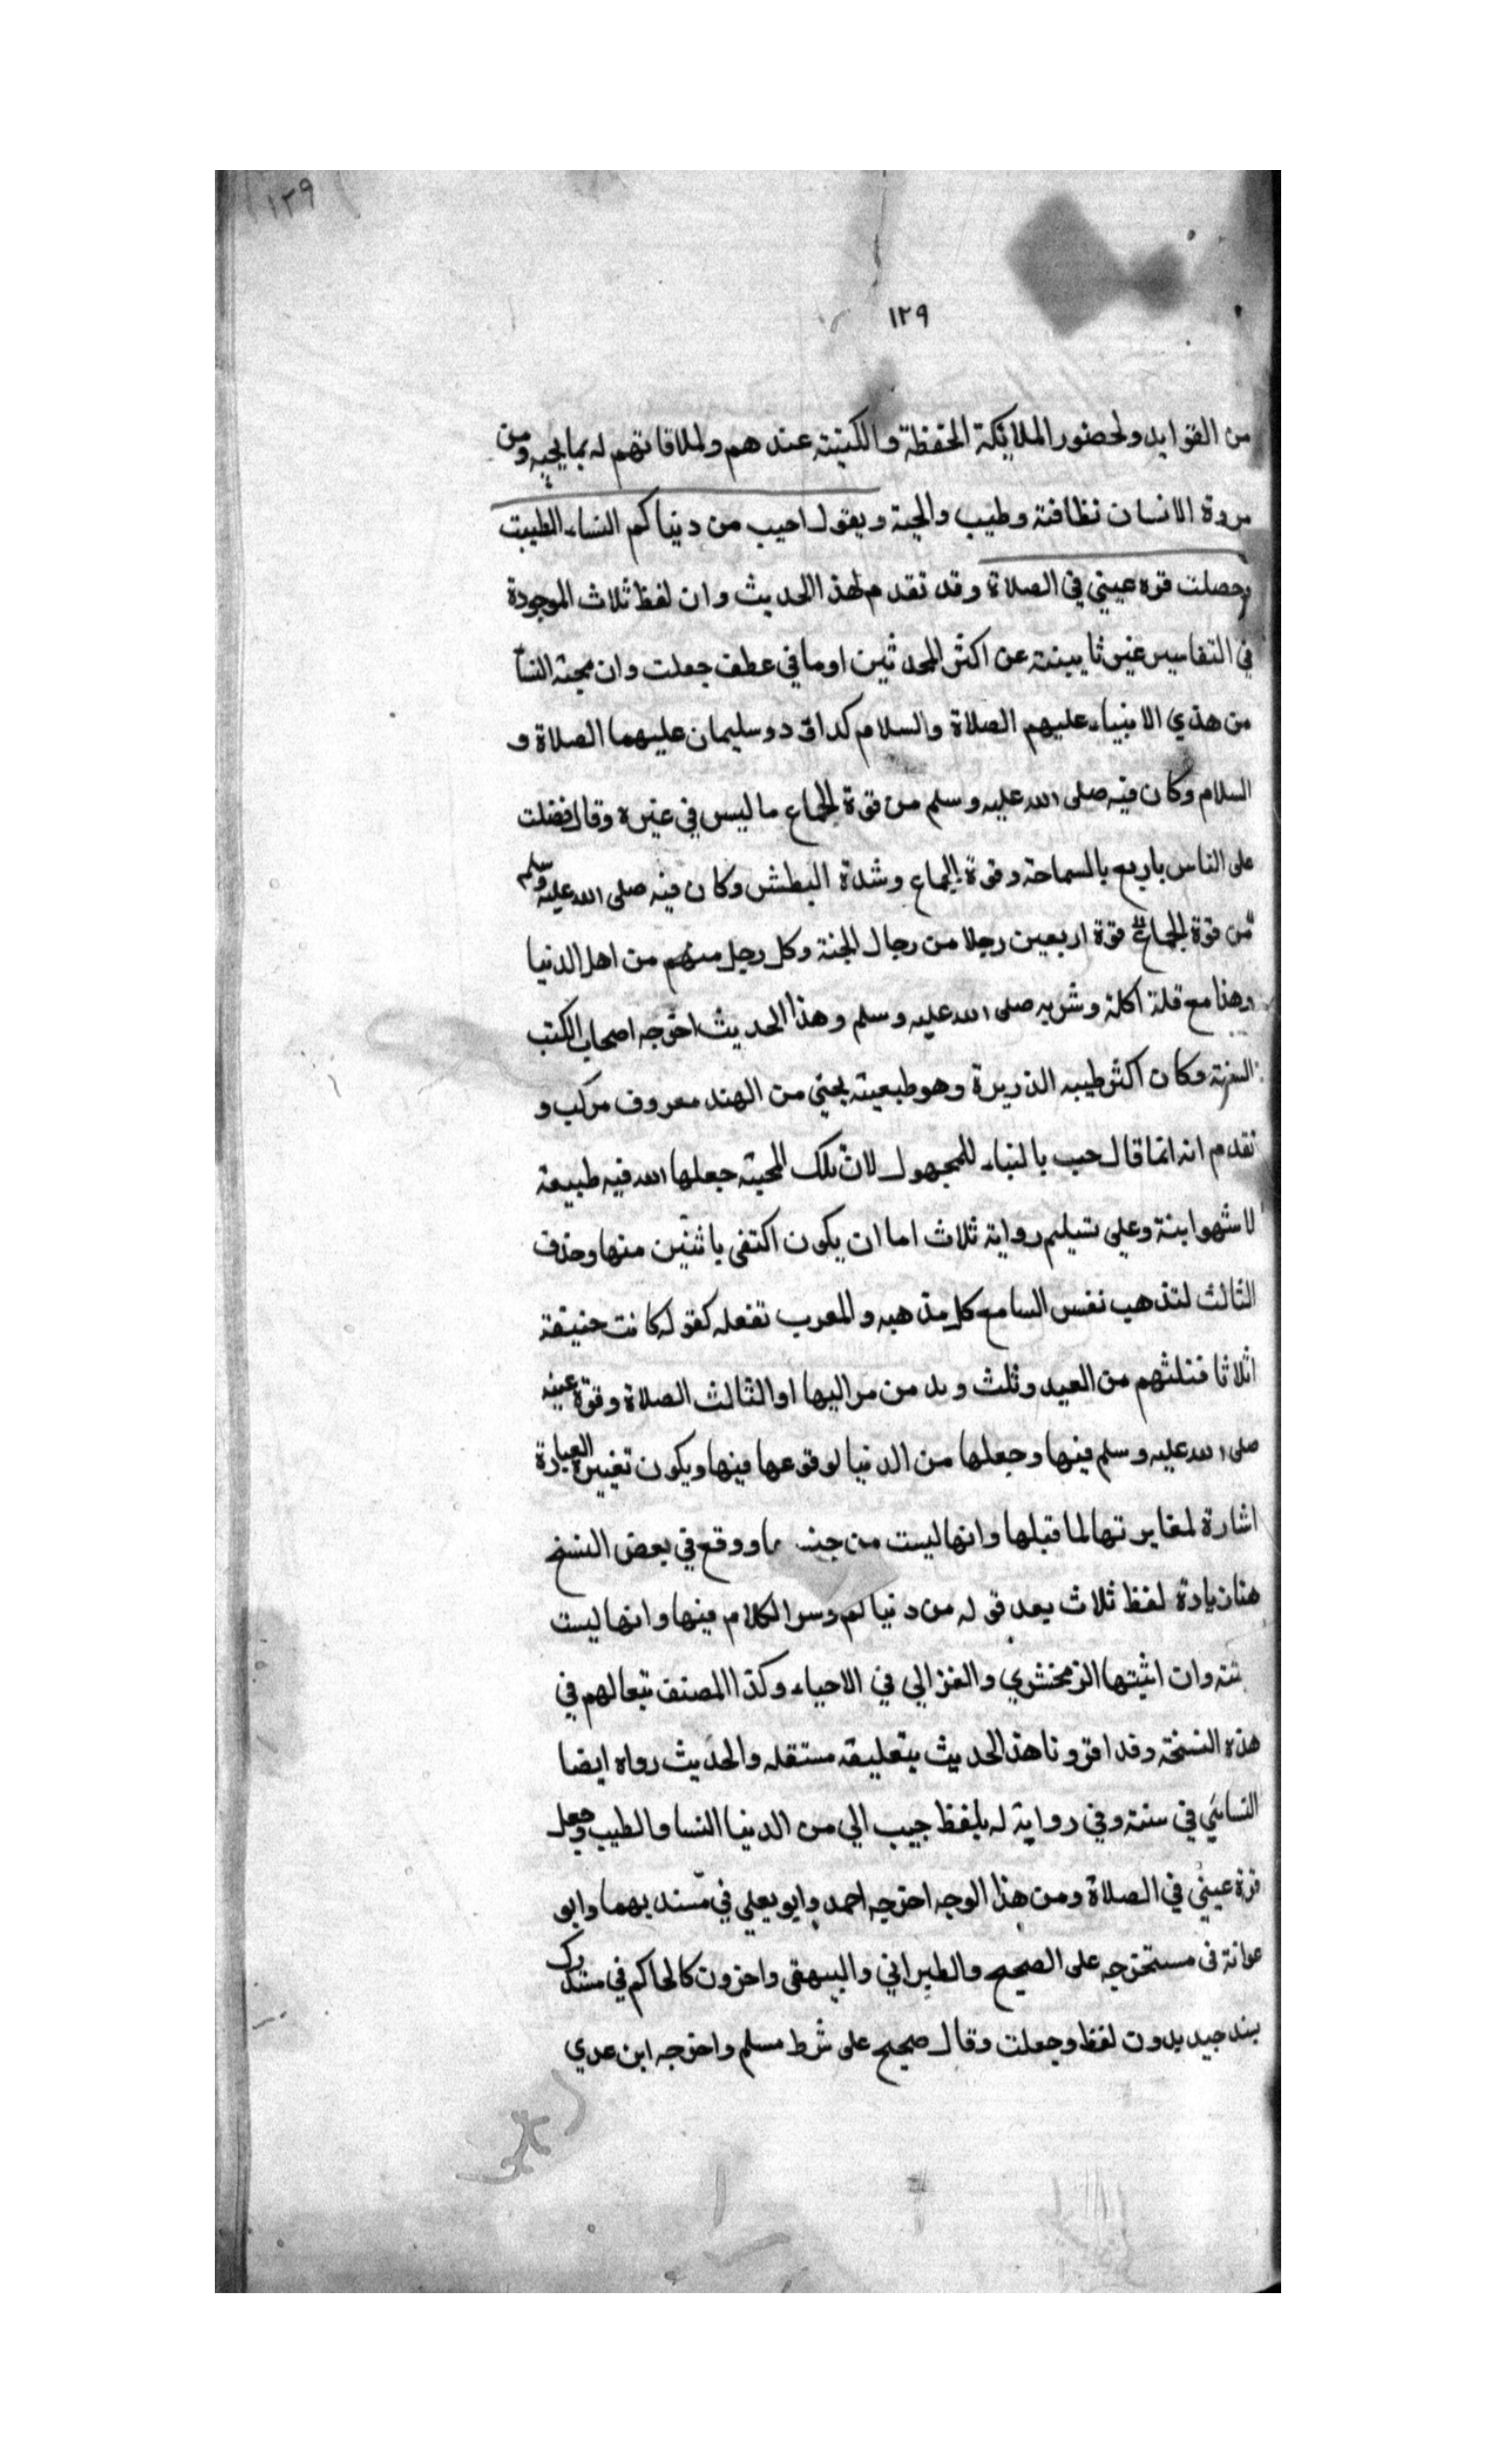 ١٢٩
١٢٩
من الفوايد ولحضور الملايكة الحفظة والكتبة عندهم ولملاقاتهم له بما يحبه ومن
مروة الانسان نظافته وطيب والحية ويقول احبب من دنياكم النساء الطيبت
وحصلت قره عيني في الصلاة وقد تقدم لهذا الحديث وان لفظ ثلاث الموجودة
في التفاسير غير ثابتة عن اكثر المحدثين اوما في عطف جعلت وان محبة النسأ
من هذي الانبياء عليهم الصلاة والسلام كداود وسليمان عليهما الصلاة و
السلام وكان فيه صلى الله عليه وسلم من قوة الجماع ما ليس في غيره وقال فضلت
على الناس باربع بالسماحة وقوة الجماع وشدة البطش وكان فيه صلى الله عليه وسلم
من قوة الجماع قوة اربعين رجلا من رجال الجنة وكل رجل منهم من اهل الدنيا
وهذا مع قلة اكله وشربه صلى الله عليه وسلم وهذا الحديث اخرجه اصحاب الكتب
الستة وكان اكثر طيبه الذريرة وهو طبعيته يجئ من الهند معروف مركب و
تقدم انه انما قال حبب بالنباء للمجهول لان تلك المحبة جعلها الله فيه طبيعة
لا شهوانية وعلى تسليم رواية ثلاث اما ان يكون اكتفى باثنين منها وحذف
الثالث لتذهب نفس السامع كل مذهبه والمعرب تفعله كقوله كانت حنيفة
اثلاثا فثلثهم من العبيد وثلث من مواليها او الثالث الصلاة وقوة عينه
صلى الله عليه وسلم فيها وجعلها من الدنيا لوقوعها فيها ويكون تغيير العبارة
اشارة لمغايرتها لما قبلها وانها ليست من ووقع في بعض النسخ
هنا زيادة لفظ ثلاث بعد قوله من دنياكم ومر الكلام فيها وانها ليست
وان اثبتها الزمخشري والغزالي في الاحياء وكذا المصنف تبعا لهم في
هذه النسخة وقد افردنا هذا الحديث بتعليقه مستقله والحديث رواه ايضا
النسائي في سننه وفي رواية له بلفظ حبب الي من الدنيا النسا والطيب وجعل
قرة عيني في الصلاة ومن هذا الوجه اخرجه احمد وابو يعلي في مسنديهما وابو
عوانة في مستخرجه على الصحيح والطبراني والبيهقي واخرون كالحاكم في مستدرك
بسند جيد بدون لفظ وجعلت وقال صحيح على شرط مسلم واخرجه ابن عدي